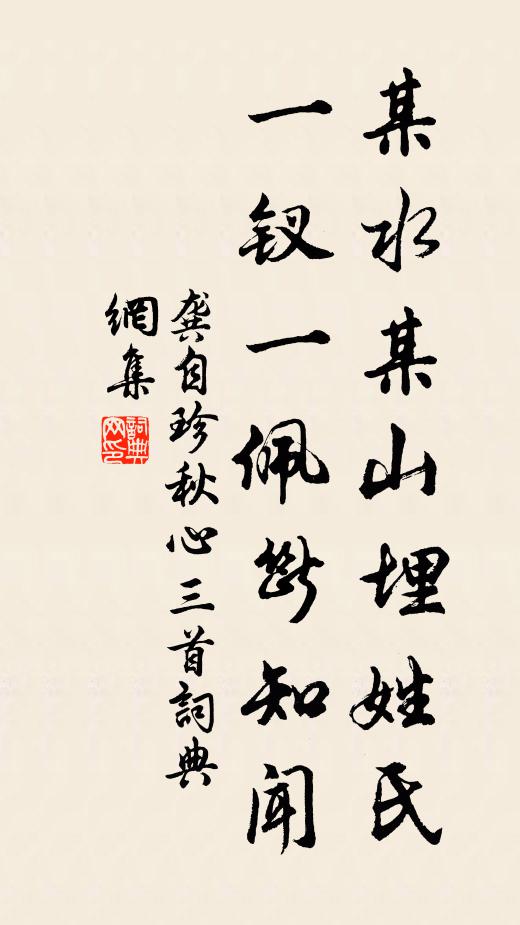 某水某山埋姓氏
一钗一佩断知闻
龚自珍秋心三首詞典
網集
詞典網印